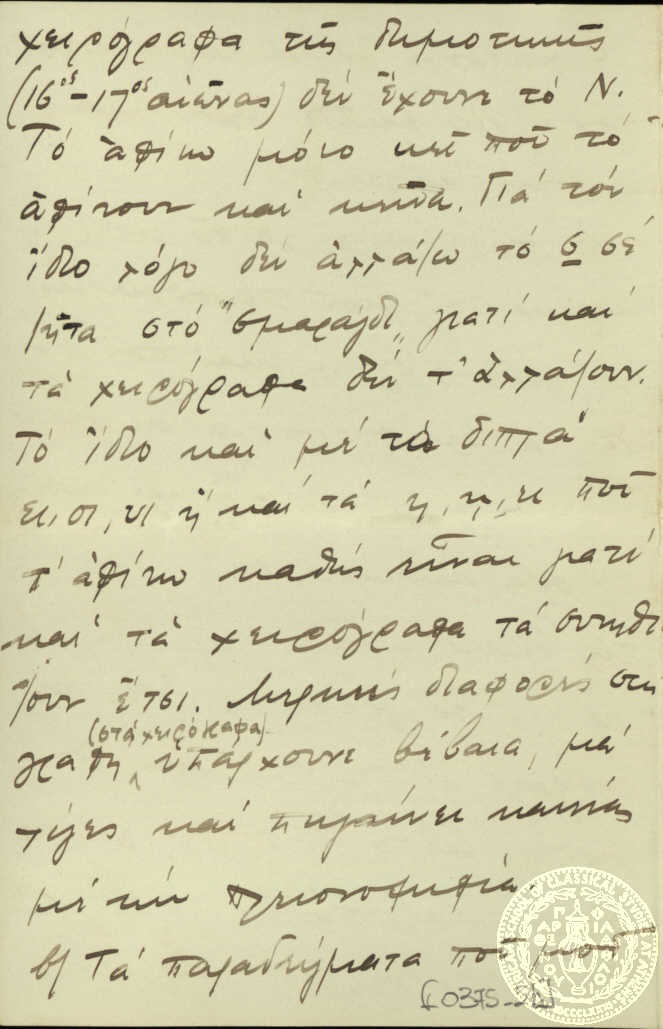 χειρόγραφα τῆς δημοτικῆς
(16ος–17ος αἰῶνας) δέν ἔχουνε τό Ν.
Τό ἀφίνω μόνο κεῖ ποῦ τό
ἀφίνουν καί κεῖνα. Γιά τόν
ἴδιο λόγο δέν ἀλλάζω τό σ σέ
ζῆτα στό "σμαράγδι" γιατί καί
τά χειρόγραφα δέν τ' ἀλλάζουν.
Τό ἴδιο καί μέ τά διπλά
ει, οι, υι ἤ καί τά η, ῃ, ει ποῦ
τ' ἀφίνω καθώς εἶναι γιατί
καί τά χειρόγραφα τά συνηθί
ζουν ἔτσι. Μερικές διαφορές στή
(στά χειρόγραφα)
γραφή ὑπάρχουνε βέβαια, μά
λίγες καί πηγαίνει κανείς
μέ τήν πλειονοψηφία.
β) Τά παραδείγματα ποῦ
[0375_51]